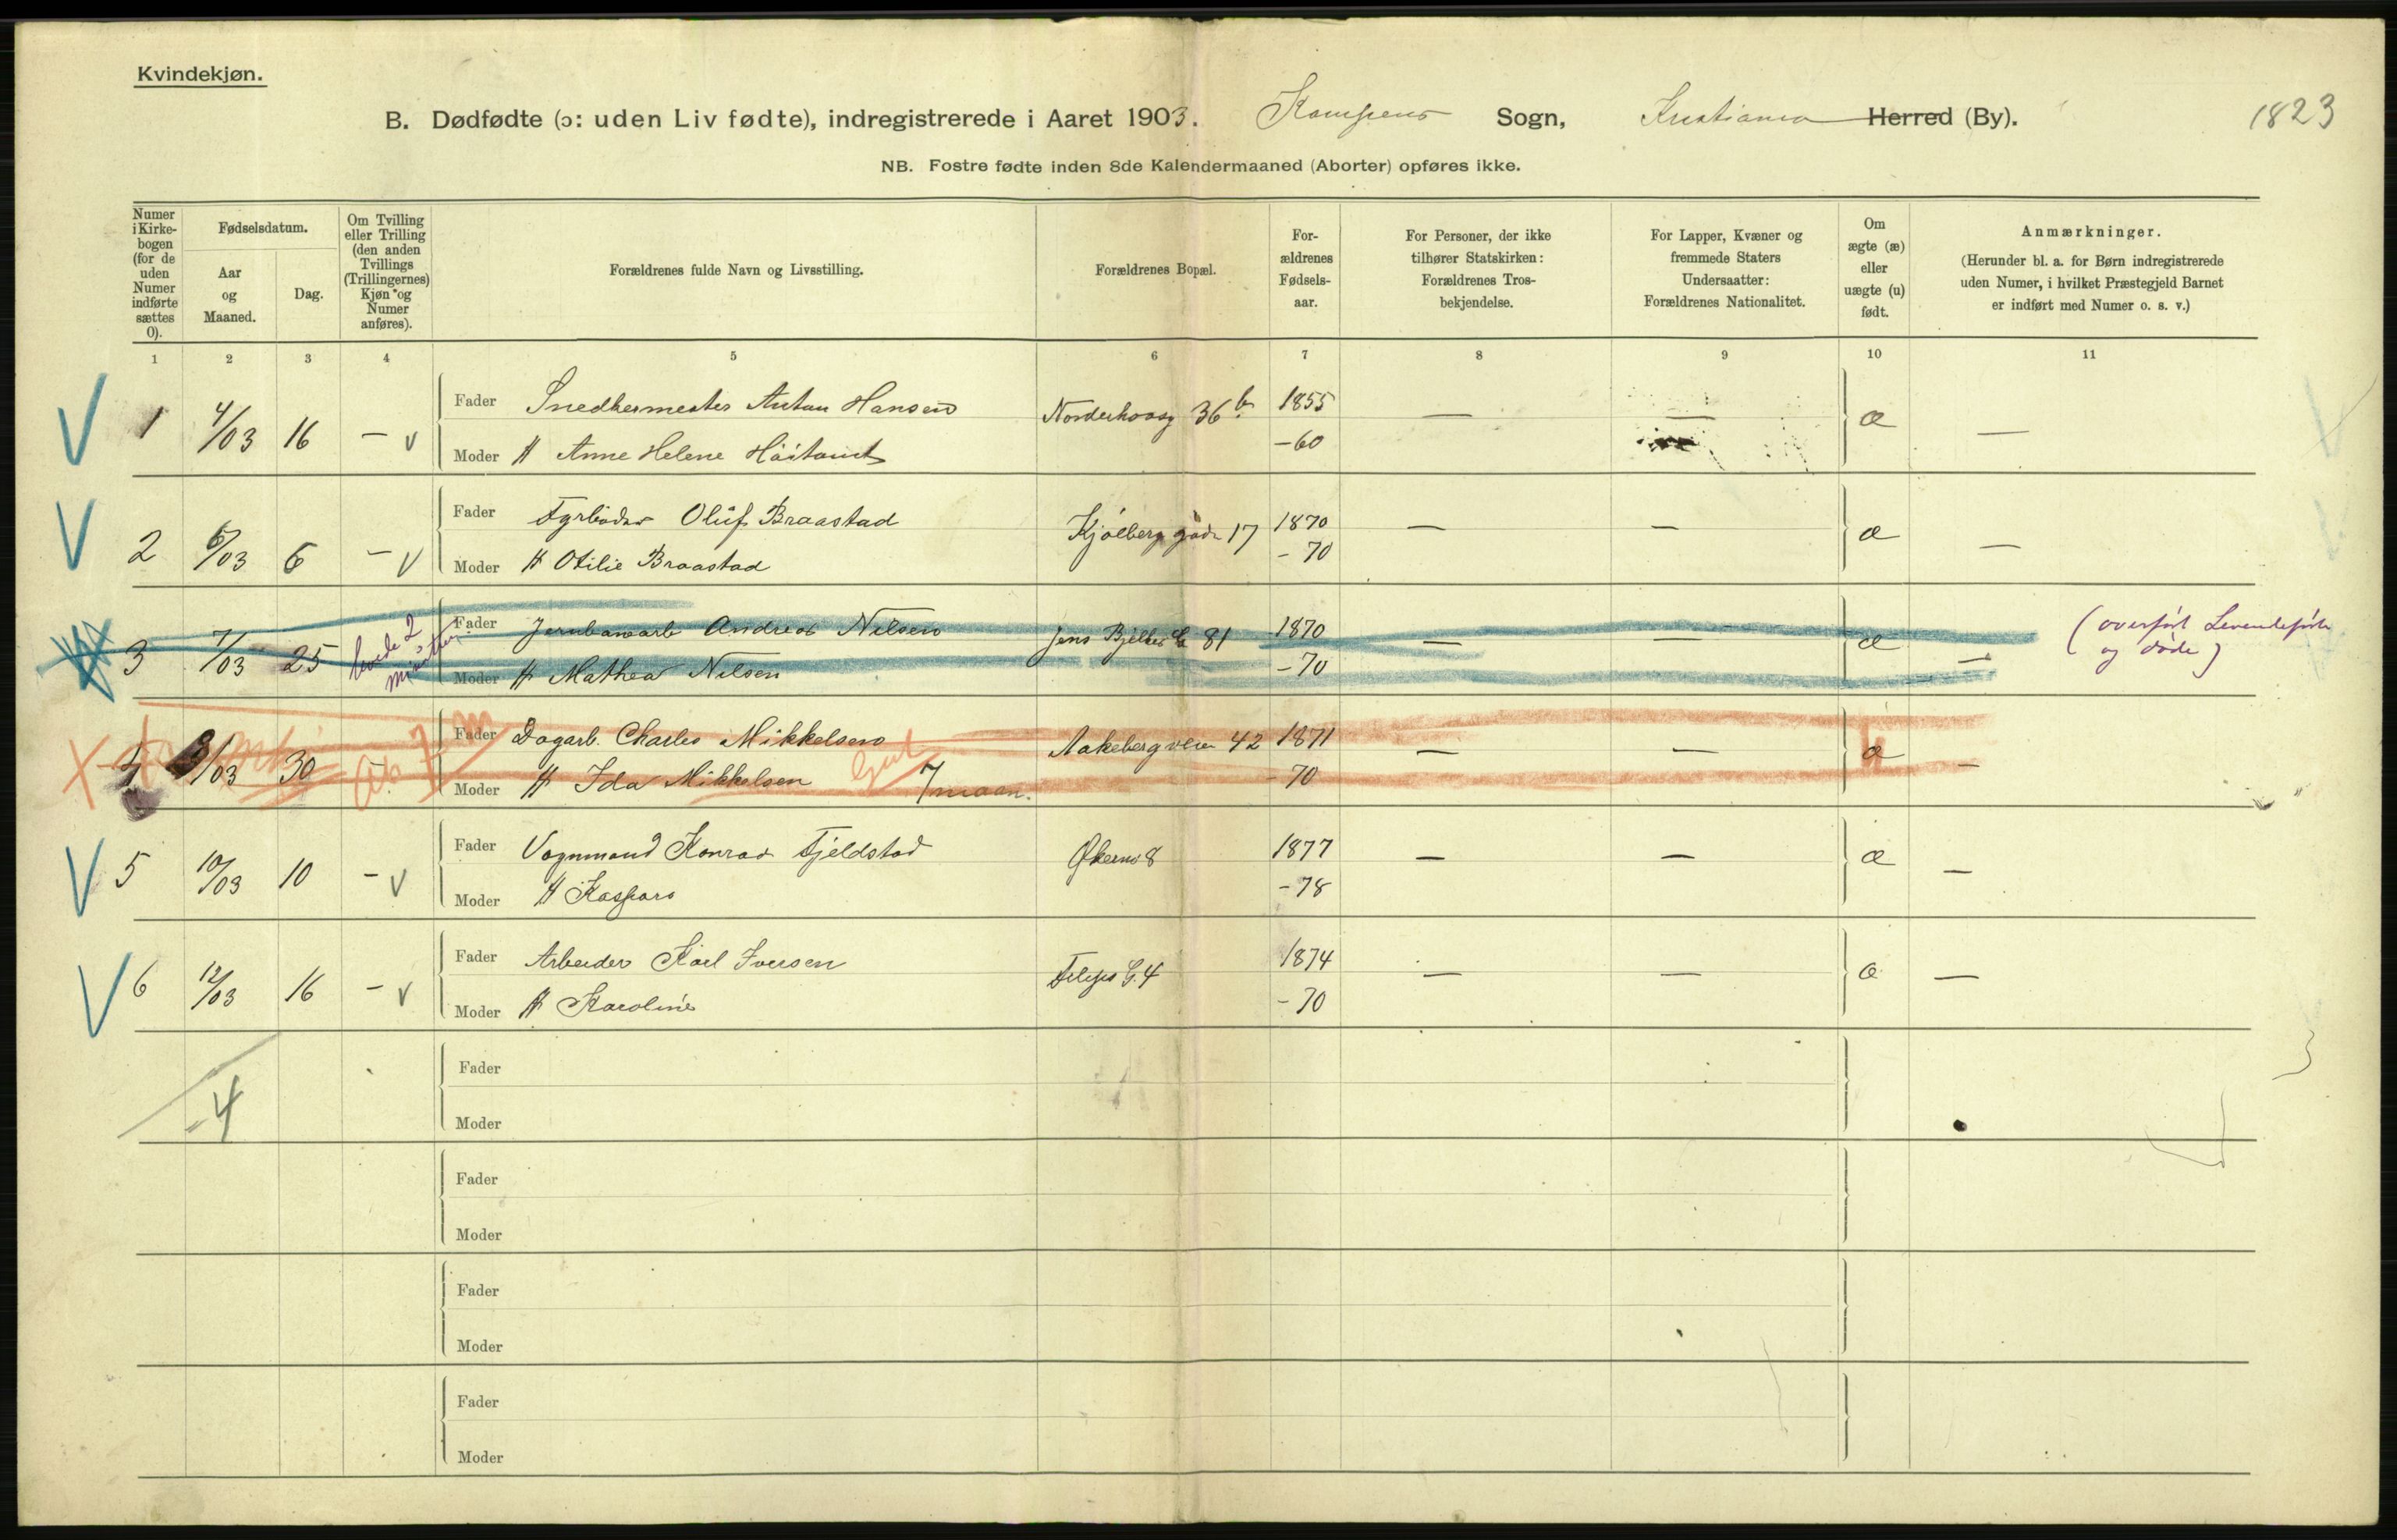 Kvindekjøn.
B. Dødfødte (ɔ: uden Liv fødte), indregistrerede i Aaret 1903. Kampens Sogn, Kristiania Herred (By). 1823
NB. Fostre fødte inden 8de Kalendermaaned (Aborter) opføres ikke.
Numer i Kirkebogen (for de uden Numer indførte sættes 0).
Fødselsdatum.
Aar og Maaned.
Dag.
Om Tvilling eller Trilling (den anden Tvillings (Trillingernes) Kjøn og Numer anføres).
Forældrenes fulde Navn og Livsstilling.
Forældrenes Bopæl.
For-ældrenes Fødsels-aar.
For Personer, der ikke tilhører Statskirken: Forældrenes Tros-bekjendelse.
For Lapper, Kvæner og fremmede Staters Undersaatter: Forældrenes Nationalitet.
Om ægte (æ) eller uægte (u) født.
Anmærkninger.
(Herunder bl. a. for Børn indregistrerede uden Numer, i hvilket Præstegjeld Barnet er indført med Numer o. s. v.)
1 2 3 4 5 6 7 8 9 10 11
V 1 4/03 16 – v Fader Snedkermester Anton Hansen Norderhovsg 36 b. 1855 — — æ —
Moder H Anne Helene -60
V 2 6/03 6 – v Fader Fyrbøder Oluf Braastad Kjølberg gade 17 1870 — — æ —
Moder H Otilie Braastad - 70
3 7/03 25 levede 2 minutter Fader Jernbanearb Andreas Nilsen Jens Bjelkes G 81 1870 — — æ — (overført Levendefødte
Moder H Mathea Nilsen - 70 og døde)
X 4 9/03 30 – Fader Dagarb. Charles Mikkelsen Aakebergveien 42 1871 — — æ —
Moder H Ida Mikkelsen 7 maan. - 70
V 5 10/03 10 – v Fader Vognmand Konrad Fjeldstad Økern 8 1877 — — æ —
Moder H Kaspara - 78
V 6 12/03 16 – v Fader Arbeider Karl Iversen G. 4 1874 — — æ —
Moder H Karoline - 70
4 Fader
Moder
Fader
Moder
Fader
Moder
Fader
Moder